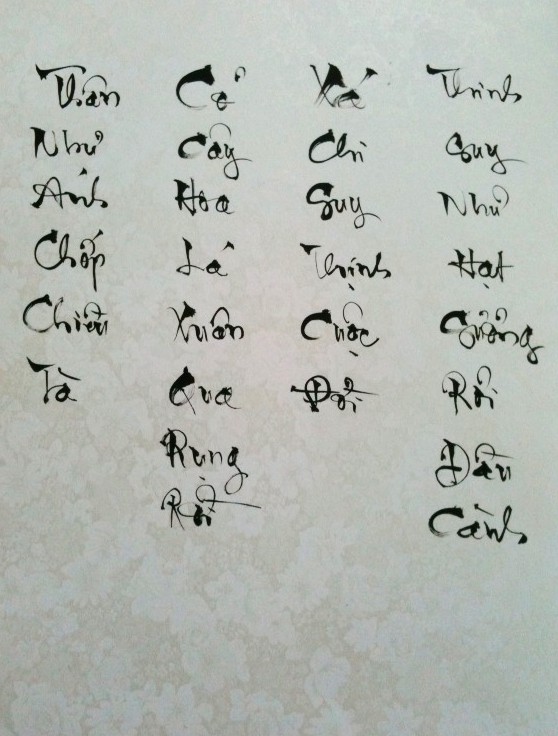 Thân Như Ánh Chớp Chiều Tà
Cỏ Cây Hoa Lá Xuân Qua Rụng Rời
Xá Chi Suy Thịnh Cuộc Đời
Thịnh Suy Như Hạt Sương Rơi Đầu Cành